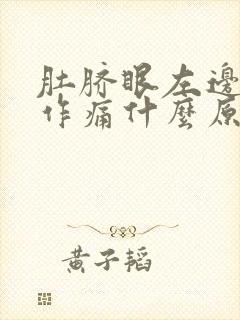 肚脐眼左邊
作痛什麼原
黄子韬